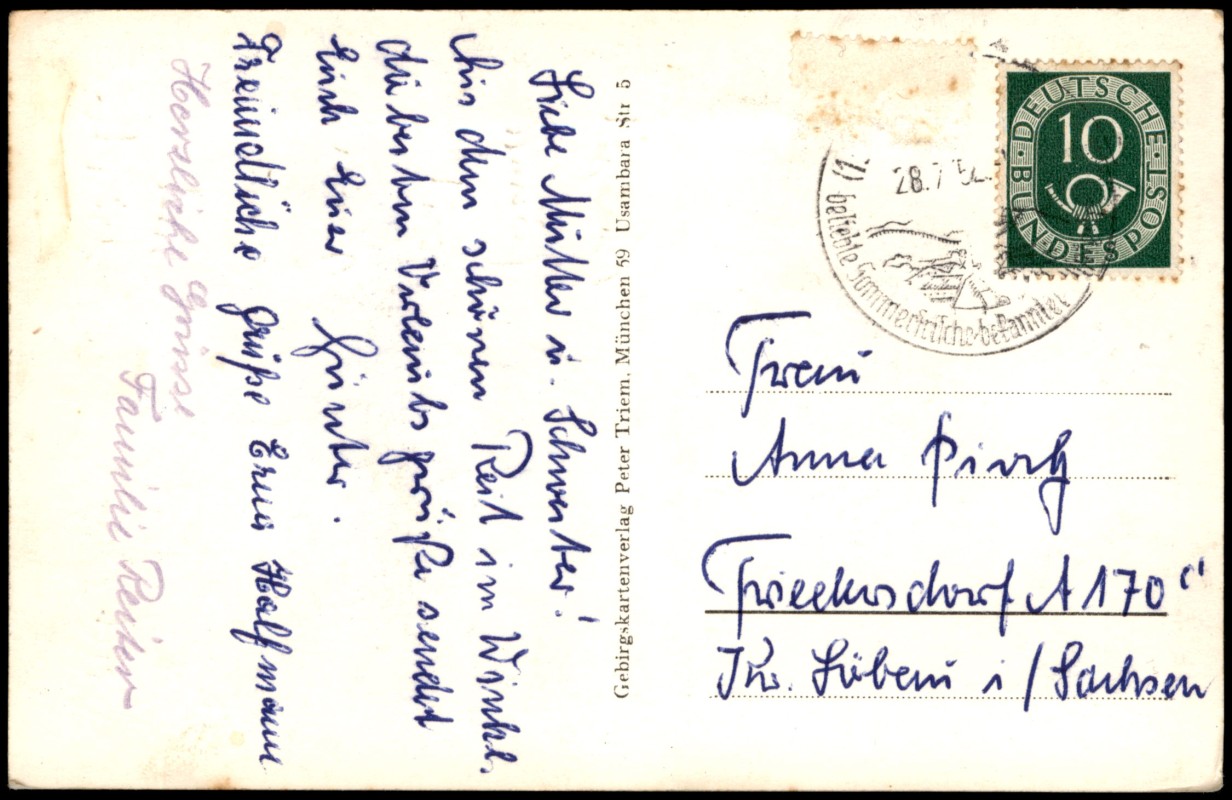 Liebe Mutter u. Schwester!
Aus dem schönen Reit im Winkl,
die besten Urlaubsgrüße sendet
Euch Euer
Günter.
Freundliche Grüße Erna Halfmann
Herzliche Grüsse
Familie Reiter
Gebirgskartenverlag Peter Triem, München 59 Usambara Str 5
28.7.52
beliebte Sommerfrische-bekannter
DEUTSCHE
BUNDESPOST
10
Frau
Anna
Friedersdorf A 170
Kr. Löbau i/Sachsen